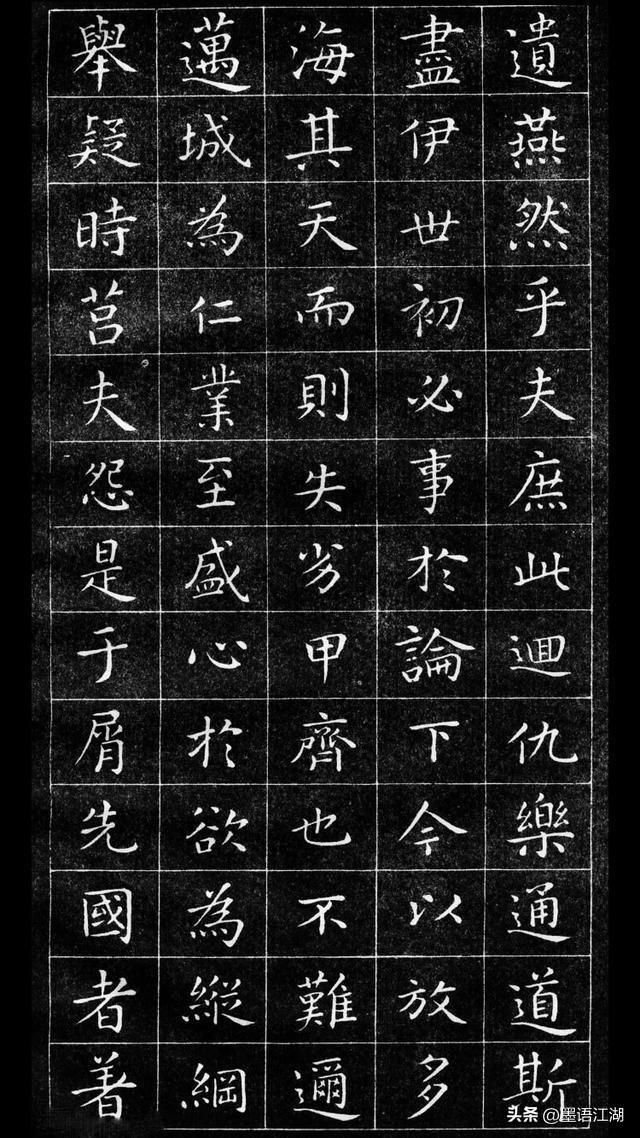 遺燕然乎夫庶此逥仇樂通道斯
盡伊世初必事於論下今以放多
海其天而則失劣甲齊也不難邇
邁城為仁業至盛心於欲為縱綱
舉疑時莒夫怨是于屑先國者著
头条 @墨语江湖